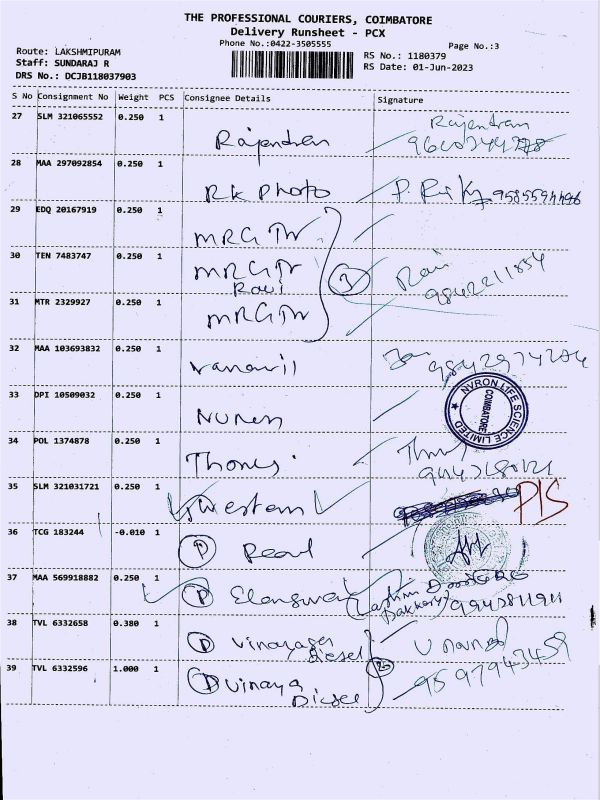 THE PROFESSIONAL COURIERS, COIMBATORE
Delivery Runsheet - PCX
Phone No.:0422-3505555
Page No.:3
Route: LAKSHMIPURAM
Staff: SUNDARAJ R
DRS No.: DCJB118037903
RS No.: 1180379
RS Date: 01-Jun-2023
S No Consignment No Weight PCS Consignee Details Signature
27 SLM 321065552 0.250 1 Rajendran Rajendran
28 MAA 297092854 0.250 1 RK Photo
29 EDQ 20167919 0.250 1 MRGTW
30 TEN 7483747 0.250 1 MRGTW Ravi 3 Ravi
9842211854
31 MTR 2329927 0.250 1 MRGTW
32 MAA 103693832 0.250 1 vanavil 9842974274
33 DPI 10509032 0.250 1
NVRON LIFE SCIENCE LIMITED
COIMBATORE
34 POL 1374878 0.250 1
35 SLM 321031721 0.250 1 Western
36 TCG 183244 -0.010 1 P Pearl
37 MAA 569918882 0.250 1 P
38 TVL 6332658 0.380 1 P Vinayaga Diesel
39 TVL 6332596 1.000 1 P Vinaya Diesel